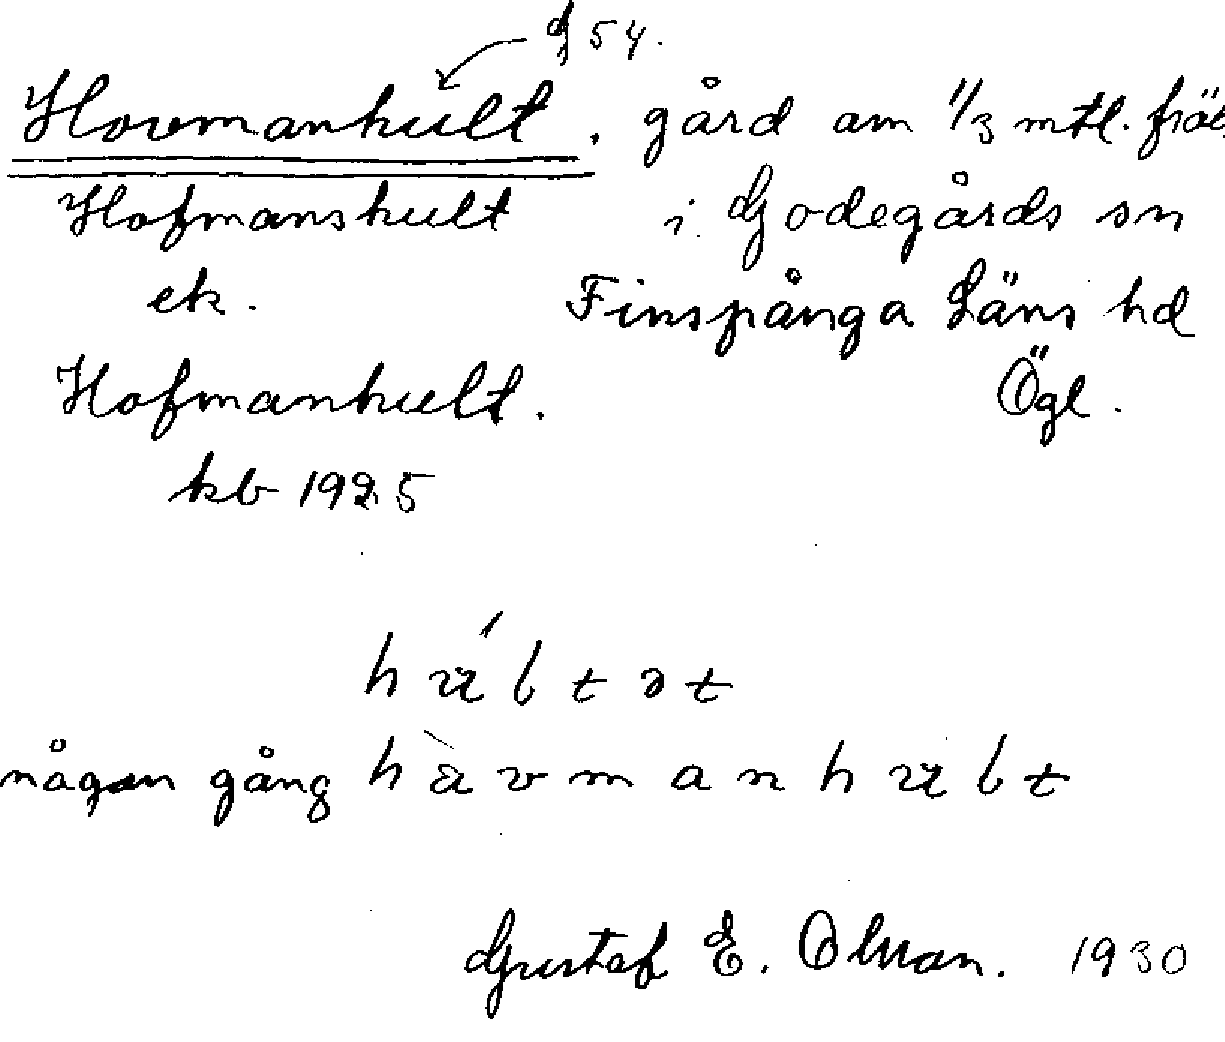 G 54.
Hovmanhult. gård om 1/3 mtl. fräl
Hofmanshult i Godegårds sn
ek. Finspånga Läns hd
Hofmanhult. Ögl.
kb 1925
hu̇́ltət
någon gång hàvmanhult
Gustaf E. Olsson. 1930